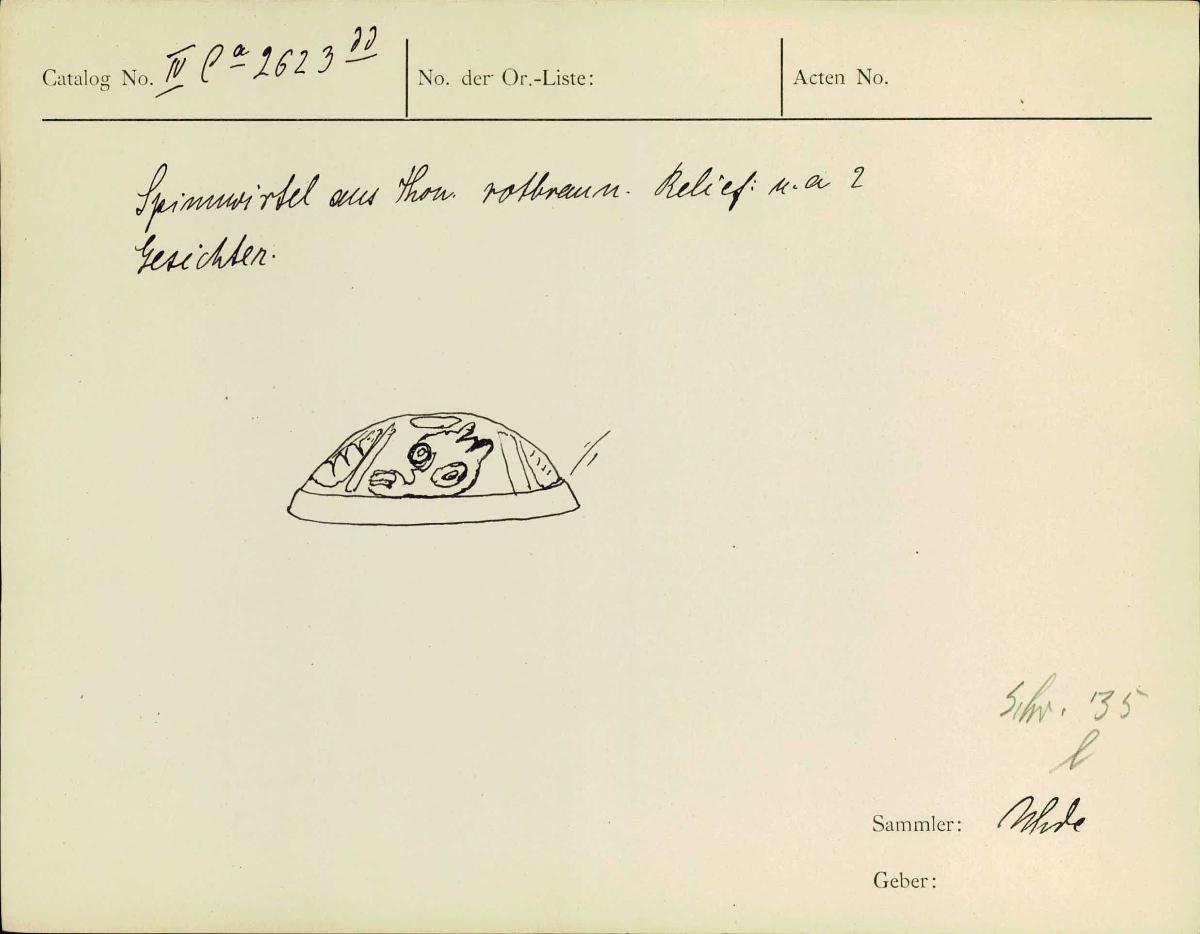 Catalog No. IV Ca 2623 dd
No. der Or.-Liste:
Acten No.
Spinnwirtel aus Thon. rotbraun. Relief: u. a 2
Gesichter.
Schr. 35
l
Sammler: Uhde
Geber: